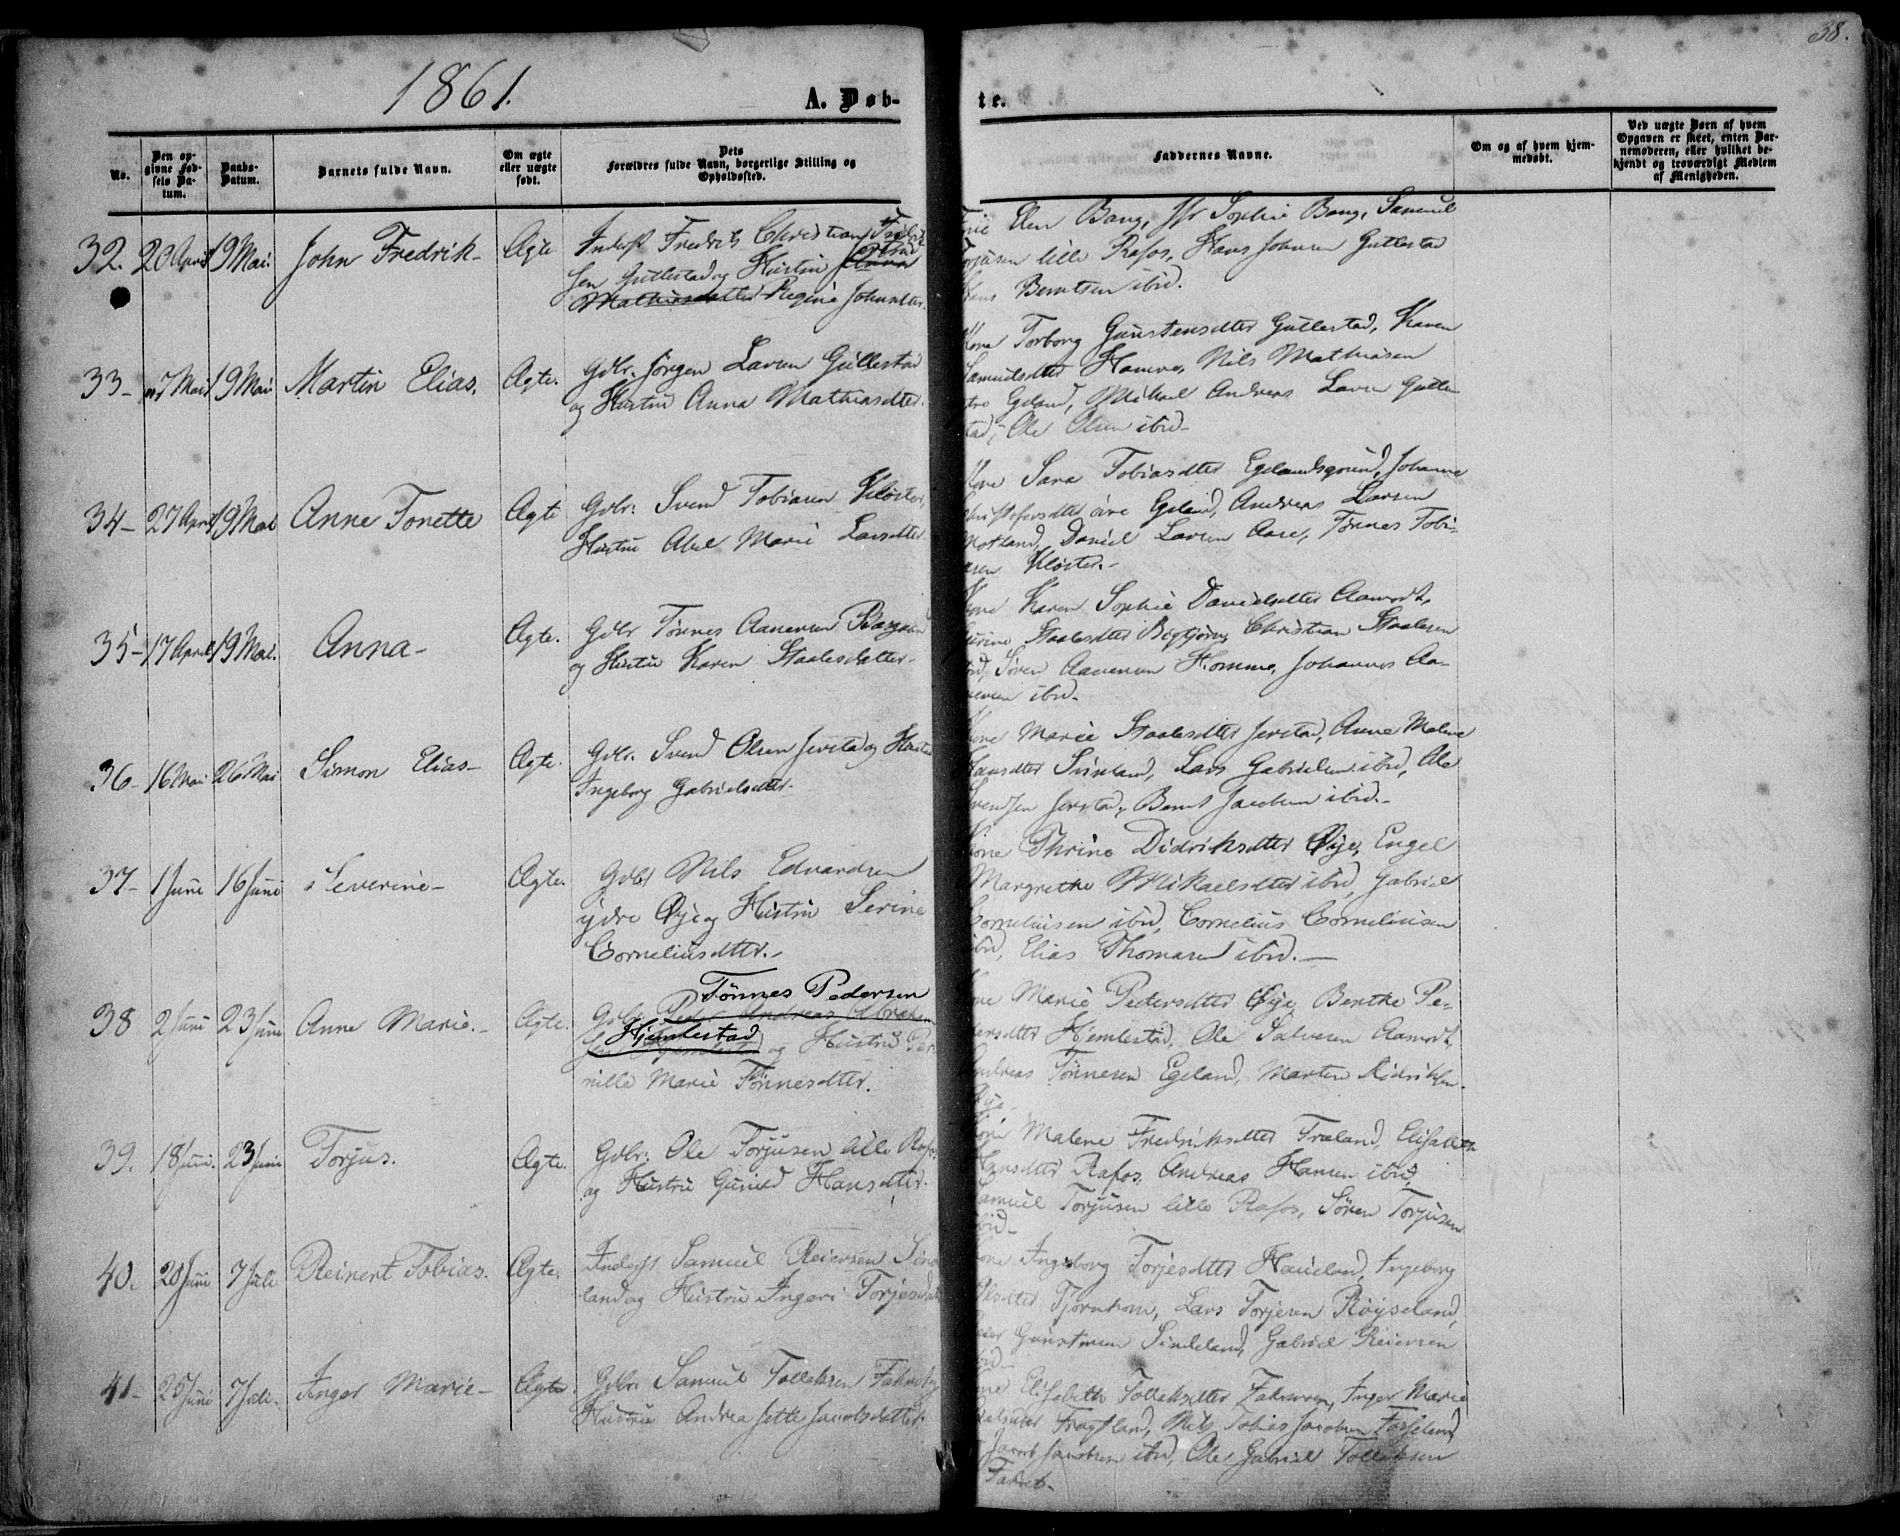 38.
1861.
A. Døb-
te.
No.
Den op-
givne Fød-
sels Da-
tum.
Daabs-
Datum.
Barnets fulde Navn.
Om ægte
eller uægte
født.
Dets
Forældres fulde Navn, borgerlige Stilling og
Opholdssted.
Faddernes Navne.
Om og af hvem hjem-
medøbt.
Ved uægte Børn af hvem
Opgaven er skeet, enten Bar-
nemoderen, eller hvilket be-
kjendt og troværdigt Medlem
af Menigheden.
32. 20 April 19 Mai. John Fredrik- Ægte
Inderst Fredrik Christian
sen Gullestad og Hustru
Mathiasdatter Regine Johnsdtter.
Elen Bang, Sophie Bang, Samuel
Torjusen lille Rafos, Hans Johnsen Gullestad
Berntsen ibid.
33- 7 Mai 19 Mai Martin Elias. Ægte.
Gdbr. Jørgen Larsen Gullestad
og Hustru Anna Mathiasdtter.
Kone Torborg Gunstensdtter Gullestad, Karen
Samuelsdtter Nils Mathiasen
Egeland, Mikael Andreas Larsen Gulle
stad, Ole Olsen ibid-
34- 27 April 19 Mai Anne Tonette Ægte
Gdbr. Svend Tobiasen Kloster,
Hustru Abel Marie Larsdtter.
Kone Sara Tobiasdtter Egelandsgrund, Johanne
Christofersdtter øvre Egeland, Andreas Larsen
Motland, Daniel Larsen Aase, Tønnes Tobi-
asen Kloster.-
35- 17 April 19 Mai. Anna- Ægte.
Gdbr Tønnes Aanensen
og Hustru Karen Staalesdatter-
Kone Karen Sophie Danielsdtter Aamodt,
Staalesdtter Christian Staalesen
ibid, Søren Aanensen Homme, Johannes Aa-
nensen ibid-
36- 16 Mai 26 Mai Simon Elias- Ægte.
Gdbr. Svend Olsen Jerstad og Hustru
Ingeborg Gabrielsdtter.
Kone Marie Staalesdtter Jerstad, Anne Malene
Hansdtter Lars Gabrielsen ibid, Ole
Svendsen Jerstad, Bernt Jacobsen ibid.-
37- 1 Juni 16 Juni Severine- Ægte.
Gdbr Nils Edvardsen
ydre Øye og Hustru Serine
Corneliusdtter.-
Kone Thrine Didriksdtter Øye, Engel
Margrethe Mikaelsdtter ibid, Gabriel
Corneliusen ibid, Cornelius Corneliusen
ibid, Elias Thomasen ibid.-
38 2 Juni 23 Juni Anne Marie.- Ægte.
Tønnes Pedersen
Gdbr. Peder Andreas Abraham
Hjemlestad
og Hustru Per-
nille Marie Tønnesdtter.
Kone Marie Pedersdtter Øye, Berthe Pe-
dersdtter Hjemlestad, Ole Salvesen Aamodt,
Andreas Tønnesen Egeland, Marten Didriksen
Øye.
39. 18 Juni. 23 Juni Torjus. Ægte.
Gdbr. Ole Torjusen lille Rafos
og Hustru Gunild Hansdtter.
Kone Malene Fredriksdtter Træland, Elisabeth
Hansdtter Rafos, Andreas Hansen ibid,
Samuel Torjusen lille Rafos, Søren Torjusen
ibid-
40. 20 Juni 7 Juli Reinert Tobias. Ægte.
Inderst Samuel Reiersen Sinde
land og Hustru Ingeri Torjesdtr
Kone Ingeborg Torjesdtter Haueland, Ingeborg
Olsdtter Tjørnhom, Lars Torjesen Røyseland,
Reier Gunstensen Sindeland, Gabriel Reiersen
ibid-
41- 25 Juni 7 Juli. Inger Marie- Ægte.
Gdbr. Samuel Tolleksen
Hustru Andrea Jette Jacobsdatter.
Kone Elisabeth Tolleksdtter Inger Marie
Nils Tobias Jacobsen
Jacob Jacobsen ibid, Ole Gabriel Tolleksen